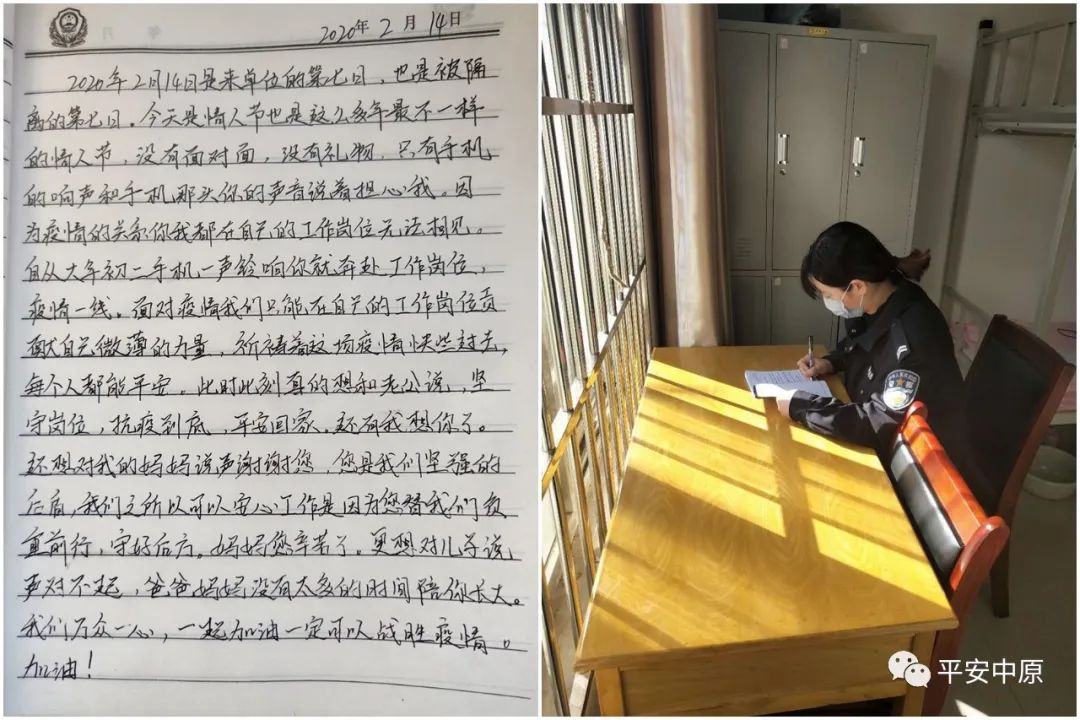 2020年2月14日
2020年2月14日是来单位的第七日，也是被隔
离的第七日。今天是情人节也是这么多年最不一样
的情人节，没有面对面，没有礼物，只有手机
的响声和手机那头你的声音说着担心我。因
为疫情的关系你我都在自己的工作岗位无法相见。
自从大年初二手机一声铃响你就奔赴工作岗位，
疫情一线。面对疫情我们只能在自己的工作岗位贡
献自己微薄的力量，祈祷着这场疫情快些过去，
每个人都能平安。此时此刻真的想和老公说，坚
守岗位，抗疫到底，平安回家。还有我想你了。
还想对我的妈妈说声谢谢您，您是我们坚强的
后盾，我们之所以可以安心工作是因为您替我们负
重前行，守好后方。妈妈您辛苦了。更想对儿子说
声对不起，爸爸妈妈没有太多的时间陪你长大。
我们万众一心，一起加油一定可以战胜疫情。
加油！
平安中原